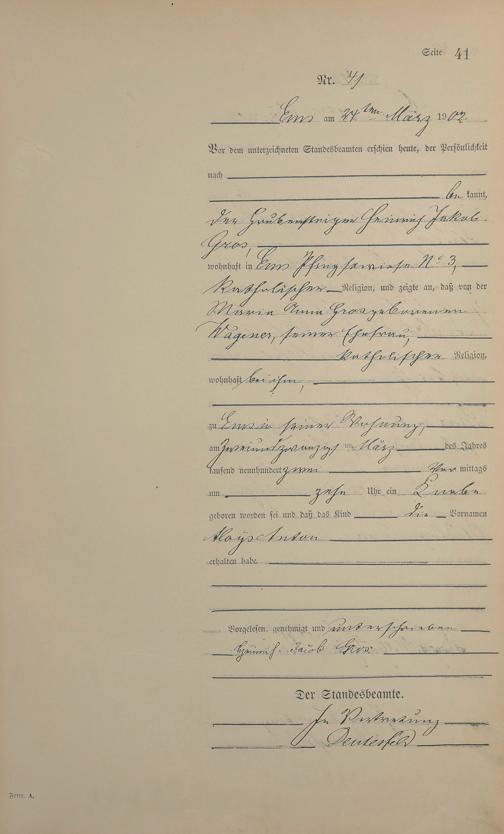 Seite 41
Nr. 41
Ems am 24ten März 1902
Vor dem unterzeichneten Standesbeamten erschien heute, der Persönlichkeit
nach
be kannt,
der Grubensteiger Heinrich Jakob
Gros,
wohnhaft in Ems Pfingstwiese No 3,
katholischer Religion, und zeigte an, daß von der
Maria Anna Gros geborenen
Wagener, seiner Ehefrau,
katholischer Religion,
wohnhaft bei ihm,
zu Ems in seiner Wohnung,
am zweiundzwanzigsten März des Jahres
tausend neunhundert zwei Vor mittags
um zehn Uhr ein Knabe
geboren worden sei und daß das Kind die Vornamen
Aloys Anton
erhalten habe.
Vorgelesen, genehmigt und unterschrieben
Heinrich Jacob Gros
Der Standesbeamte.
In Vertretung
Form. A.